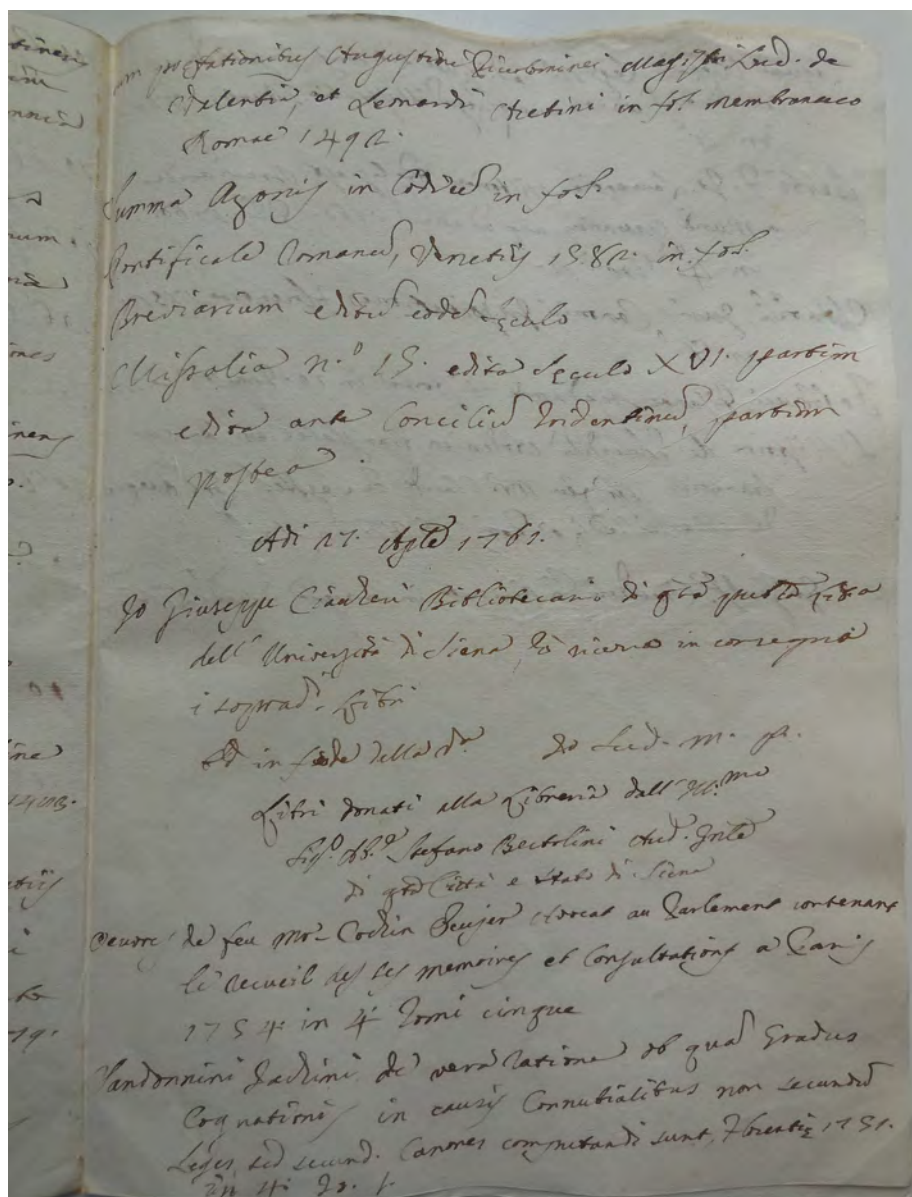 um praefationibus Augustini Mag.stri Lud. de
Valentia, et Leonardi Aretini in fol. membranaceo
Romae 1492.
Summa Azonis in Codicem in fol.
Pontificale Romanum, Venetijs 1582. in fol.
Breviarium editum eodem seculo
Missalia n.o 15. edita seculo XVI. partim
edita ante Concilium Tridentinum, partim
postea.
Adi 27. Agto 1761.
Io Giuseppe Ciaccheri Bibliotecario di qta pubca Libra
dell' Università di Siena, ho ricevuo in consegna
i soprad.i Libri
Ed in fede della da Io sud. m. p.
Libri donati alla Libreria dall' Ill.mo
Sig.e Ab.e Stefano Bertolini Aud. Gnle
di qta Città e Stato di Siena
Oeuvres de feu Mor Cochin Avocat au Parlement contenant
le recueil des ses memoires et Consultations a Paris
1754 in 4 Tomi cinque
Vandonnini Fachini de vera ratione ob quam Gradus
Cognationis in causis Connubialibus non secundum
Leges, sed secund. Canones computandi sunt, Florentiae 1751.
in 4. To. 1.